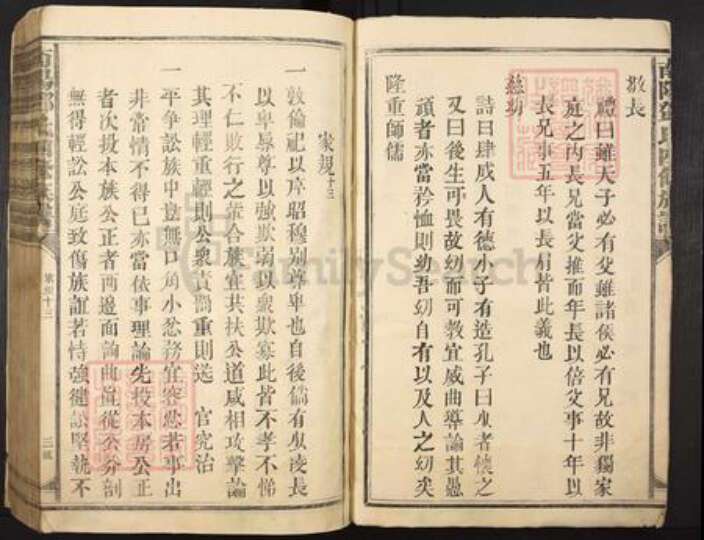 敬長
禮曰雖天子必有父雖諸侯必有兄故非獨家
庭之內長兄當父推而年長以倍父事十年以
長兄事五年以長肩皆此義也
慈幼
詩曰肆成人有德小子有造孔子曰少者懷之
又曰後生可畏故幼而可教宜威曲導諭其愚
頑者亦當矜恤則幼吾幼自有以及人之幼矣
隆重師儒
家規十三
一敦倫祀以序昭穆別尊卑也自後倘有以凌長
以卑辱尊以強欺弱以衆欺寡此皆不孝不悌
不仁敗行之輩合族宜共扶公道咸相攻擊論
其理輕重輕則公衆責罰重則送 官究治
一平爭訟族中豈無口角小忿務宜容忍若事出
非常情不得已亦當依事理論先投本房公正
者次投本族公正者兩邊面詢曲直從公分剖
無得輕訟公庭致傷族誼若恃強健訟堅執不
FamilySearch